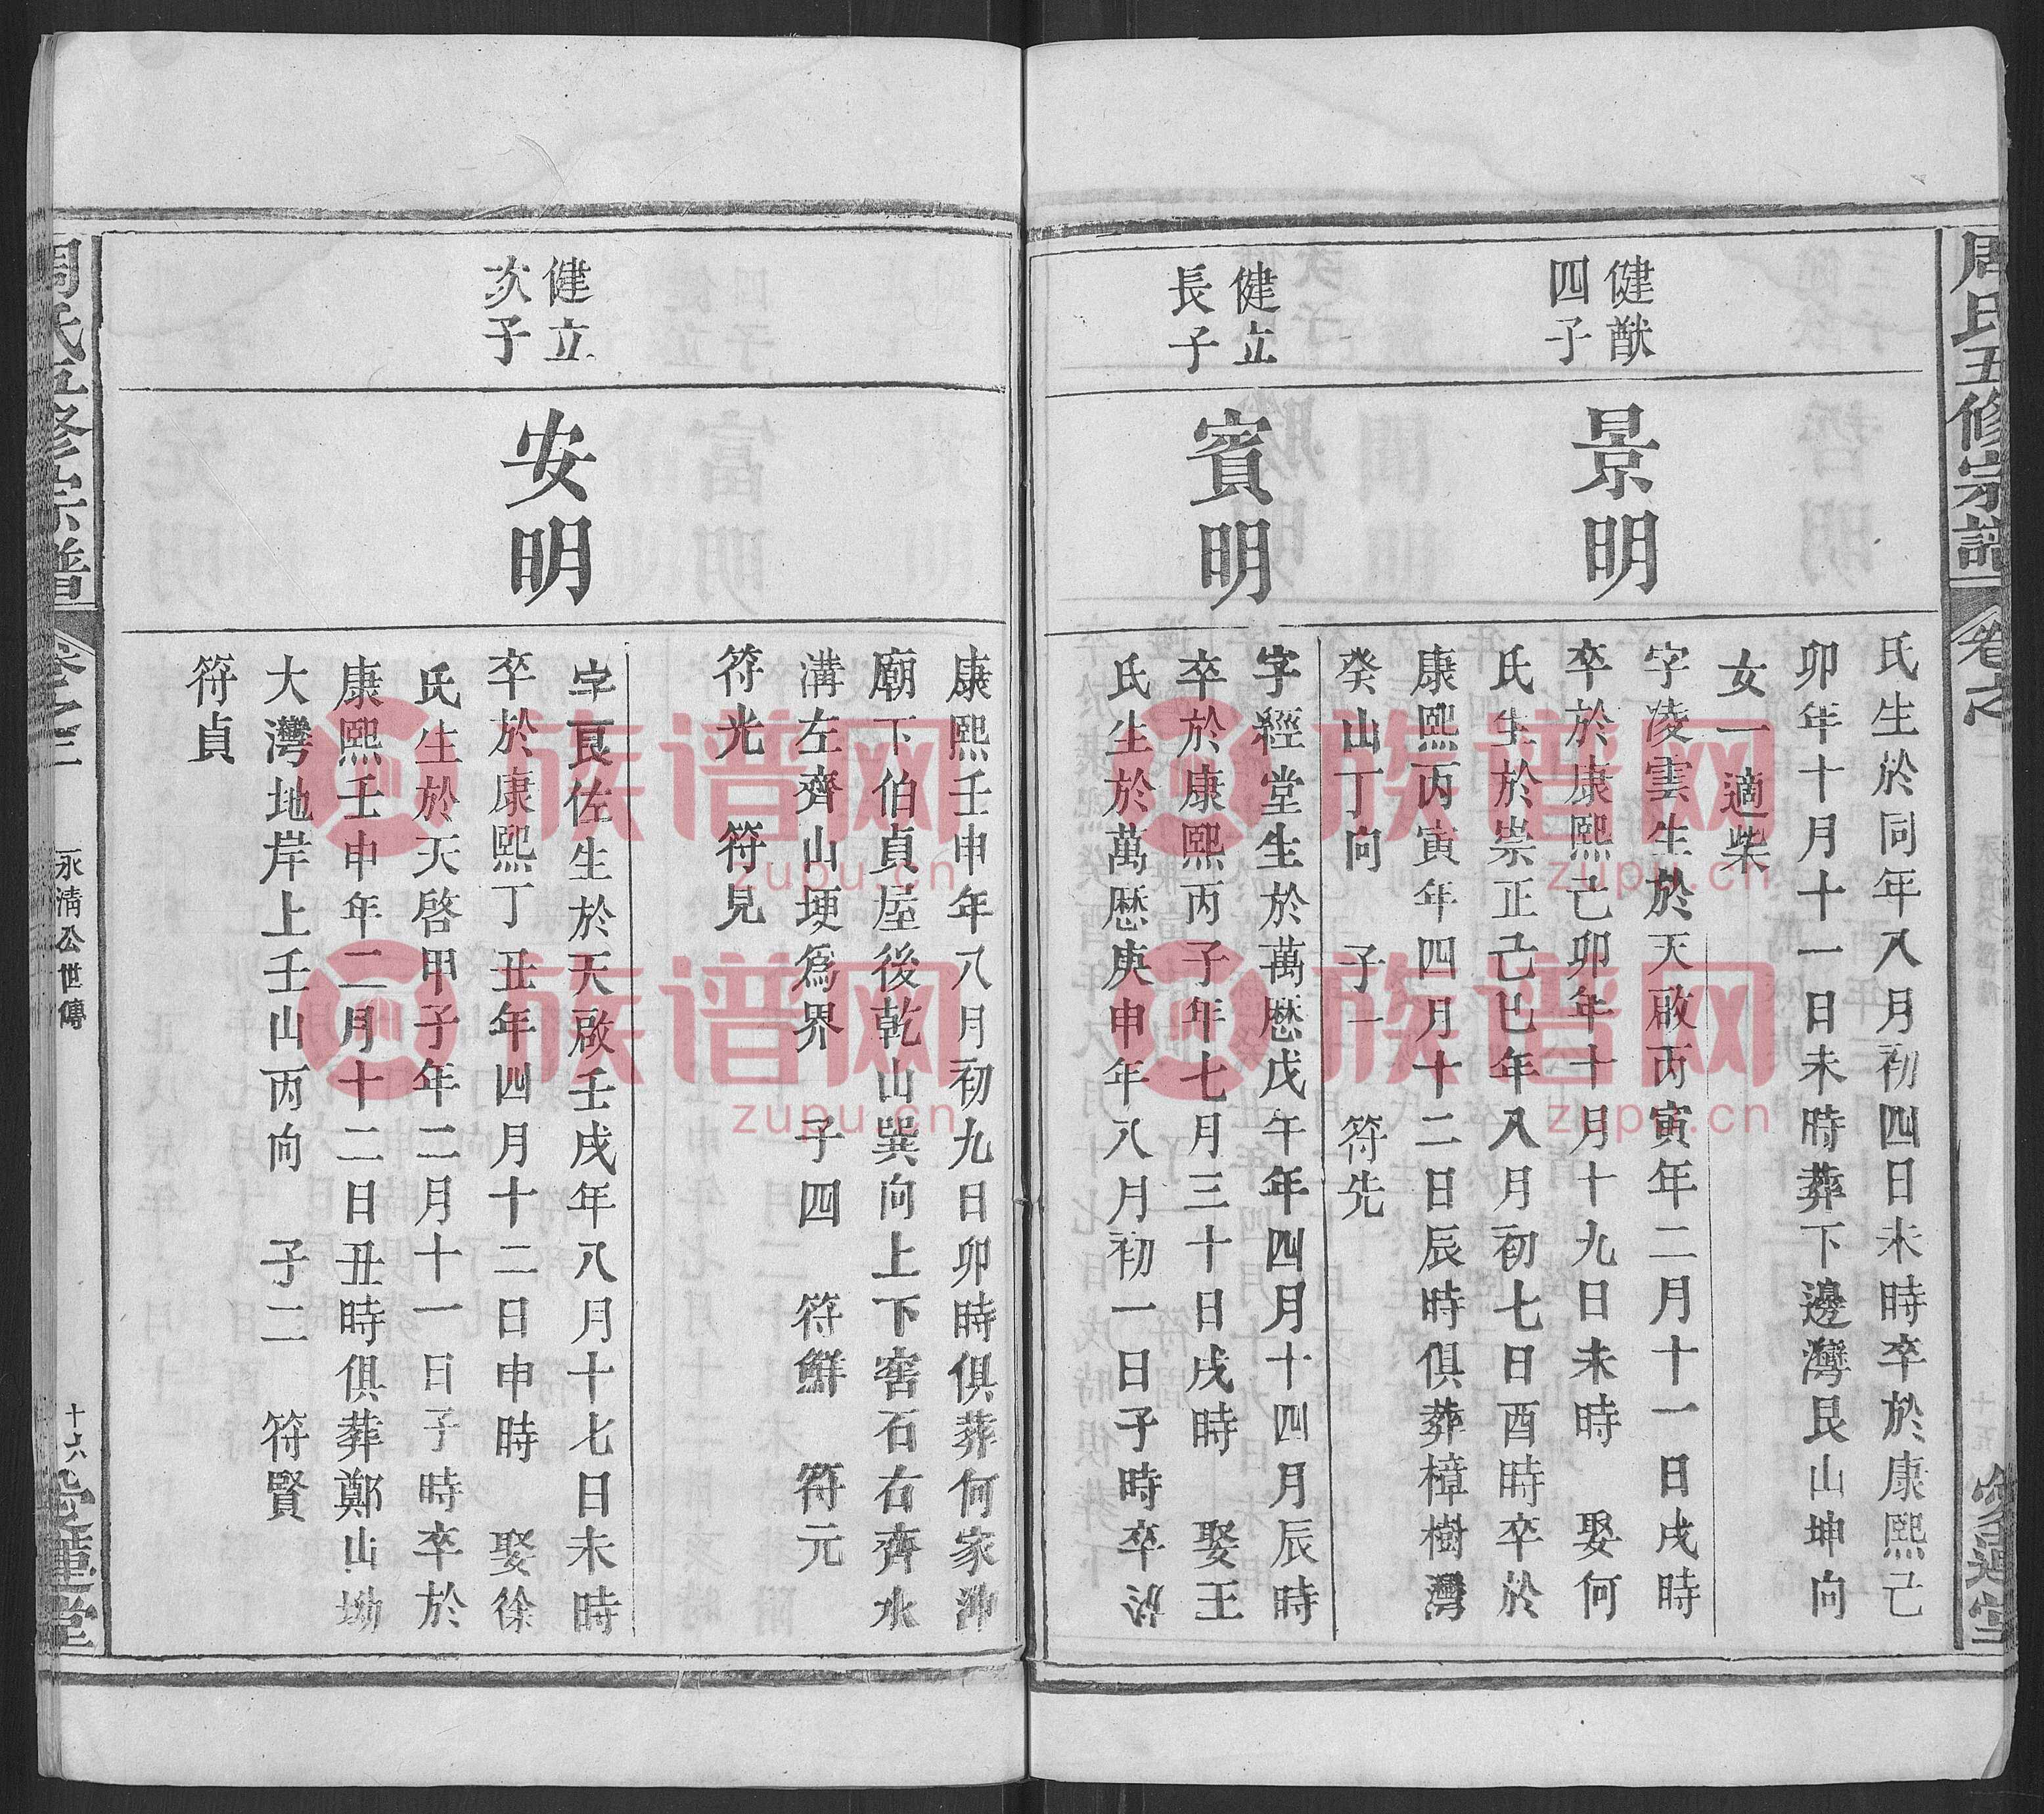 周氏五修宗譜
卷之
氏生於同年八月初四日未時卒於康熙己
卯年十月十一日未時葬下邊灣艮山坤向
女一適柴
健猷
四子
景明
字凌雲生於天啟丙寅年二月十一日戌時
卒於康熙己卯年十月十九日未時 娶何
氏生於崇正己巳年八月初七日酉時卒於
康熙丙寅年四月十二日辰時俱葬樟樹灣
癸山丁向 子一 符先
健立
長子
賓明
字經堂生於萬厯戊午年四月十四月辰時
卒於康熙丙子年七月三十日戌時 娶王
氏生於萬厯庚申年八月初一日子時卒於
康熙壬申年八月初九日卯時俱葬何家沖
廟下伯貞屋後乾山巽向上下窖石右齊水
溝左齊山埂爲界 子四 符鮮 符元
符光 符見
健立
次子
安明
字良佐生於天啟壬戌年八月十七日未時
卒於康熙丁丑年四月十二日申時 娶徐
氏生於天啓甲子年二月十一日子時卒於
康熙壬申年二月十二日丑時俱葬鄭山坳
大灣地岸上壬山丙向 子二 符賢
符貞
周氏五修宗譜
卷之二
永清公世傳
十六
愛蓮堂
族谱网
zupu.cn
族谱网
zupu.cn
族谱网
zupu.cn
族谱网
zupu.cn